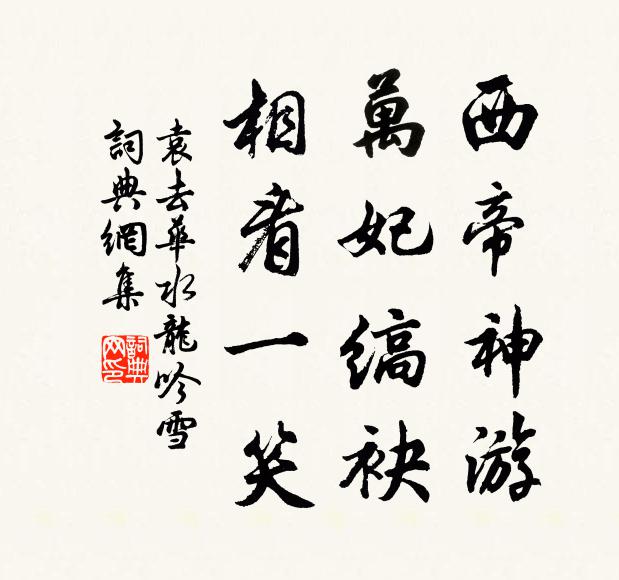 西帝神游
萬妃縞袂
相看一笑
袁去華水龍吟雪
詞典網集
詞典網印